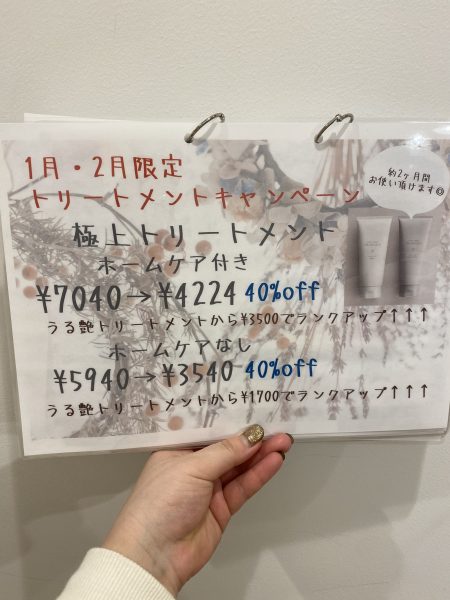 1月・2月限定
トリートメントキャンペーン
約2ヶ月間
お使い頂けます◎
極上トリートメント
ホームケア付き
¥7040→¥4224 40%off
うる艶トリートメントから¥3500でランクアップ↑↑↑
ホームケアなし
¥5940→¥3540 40%off
うる艶トリートメントから¥1700でランクアップ↑↑↑